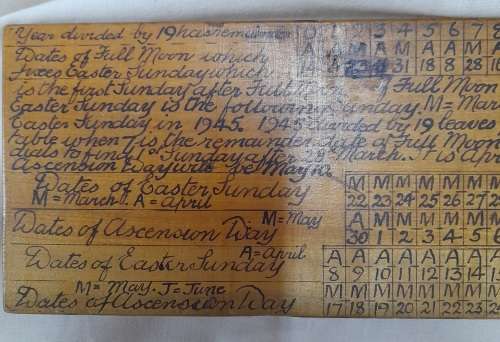 Year divided by 19 has remainder 0 1 2 3 4 5 6 7 8
Dates of Full Moon which A A M A M A A M A
fixes Easter Sunday which 31 18 8 28 16
is the first Sunday after Full Full Moon
Easter Sunday is the following Sunday. M = Mar
Easter Sunday in 1945. 1945 divided by 19 leaves
table when 7 is the remainder date of Full Moon
dials to find Sunday after 28 March. It is Ap
Ascension Day will be May 10.
Dates of Easter Sunday M M M M M M M
M = March. A = April 22 23 24 25 26 27 28
M = May A M M M M M M
Dates of Ascension Day 30 1 2 3 4 5 6
A = April A A A A A A A
Dates of Easter Sunday 8 9 10 11 12 13 14
M = May. J = June M M M M M M M
Dates of Ascension Day 17 18 19 20 21 22 23 24